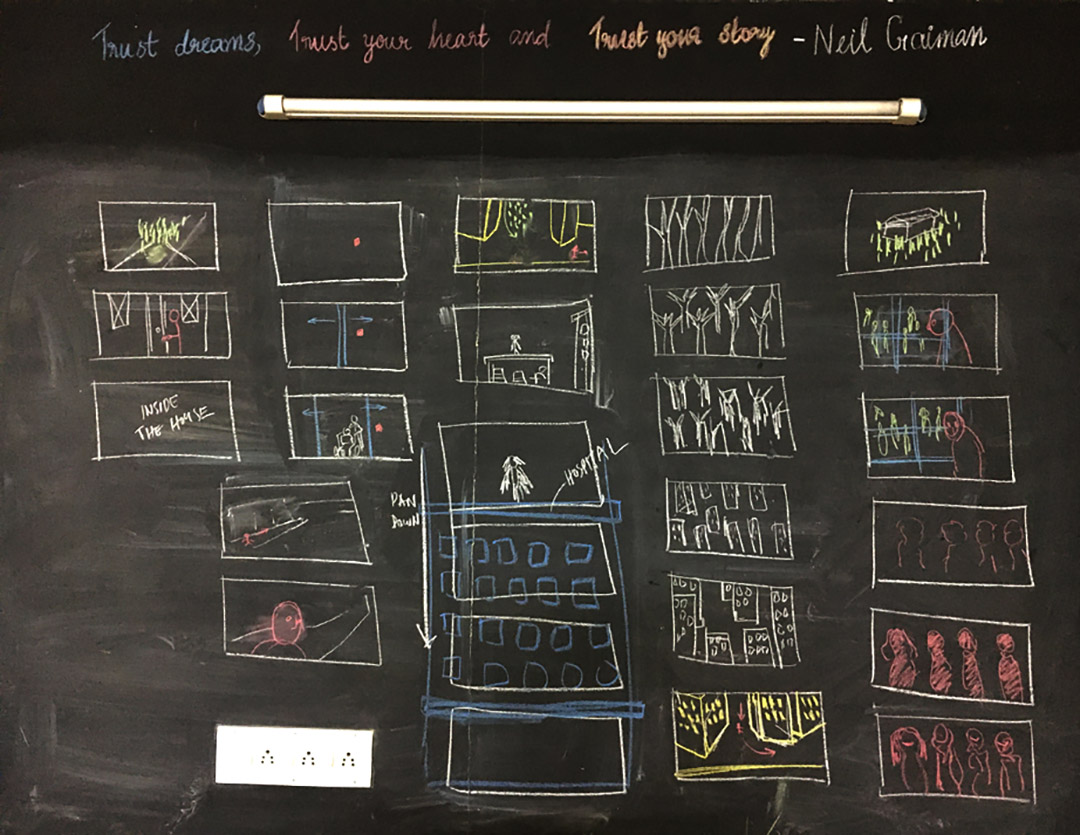 Trust dreams, Trust your heart and Trust your story - Neil Gaiman
INSIDE
THE HOUSE
PAN
DOWN
HOSPITAL